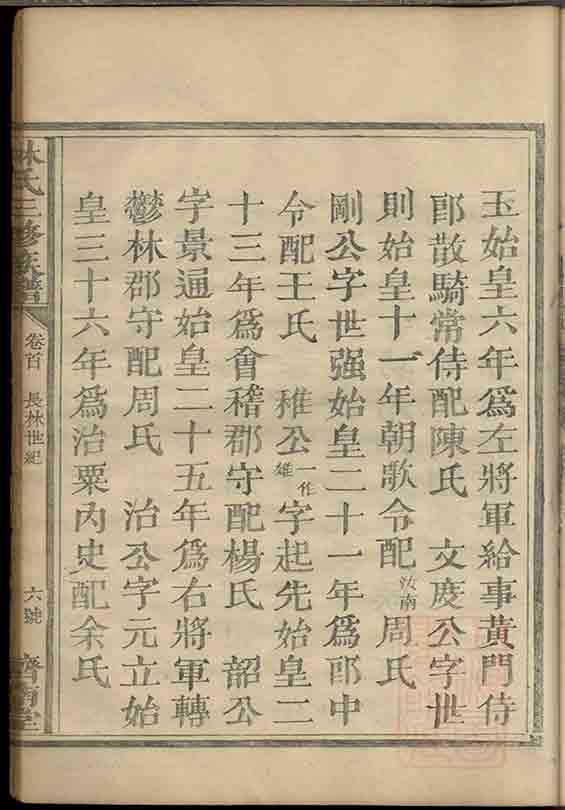 玉始皇六年爲左將軍給事黃門侍
郎散騎常侍配陳氏　文度公字世
則始皇十一年朝歌令配汝南周氏
剛公字世强始皇二十一年爲郎中
令配王氏　稚公一作雄字起先始皇二
十三年爲會稽郡守配楊氏　韶公
字景通始皇二十五年爲右將軍轉
鬱林郡守配周氏　治公字元立始
皇三十六年爲治粟內史配余氏
林氏三修族譜
卷首　長林世紀
六號
濟南堂